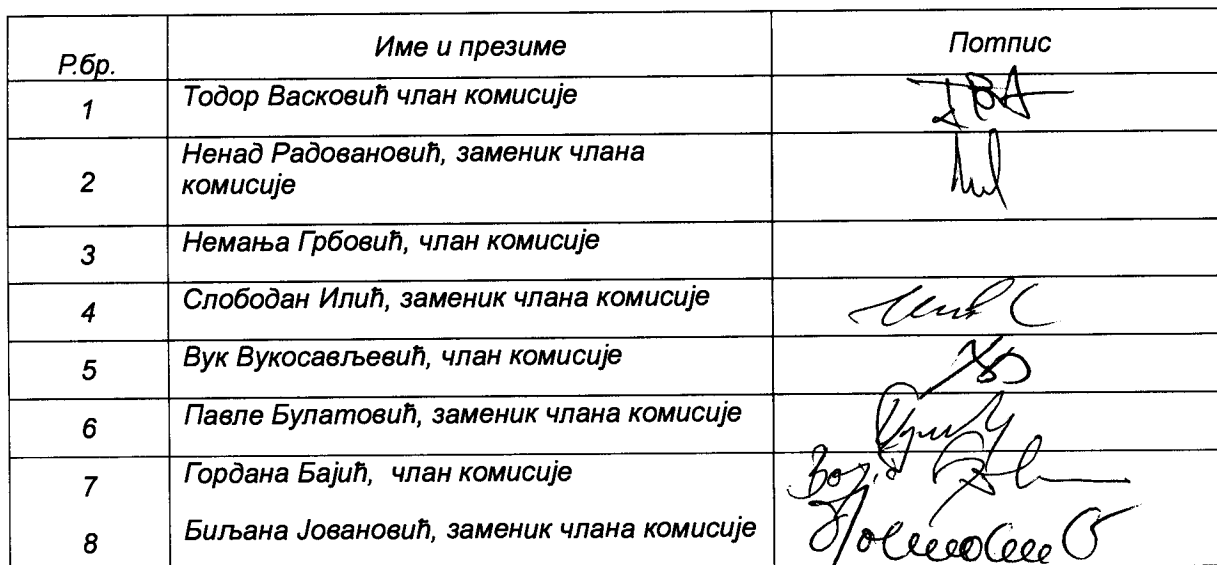 Р.бр. Име и презиме Потпис
1 Тодор Васковић члан комисије
Ненад Радовановић, заменик члана
2 комисије
3 Немања Грбовић, члан комисије
4 Слободан Илић, заменик члана комисије
5 Вук Вукосављевић, члан комисије
6 Павле Булатовић, заменик члана комисије
7 Гордана Бајић, члан комисије
8 Биљана Јовановић, заменик члана комисије